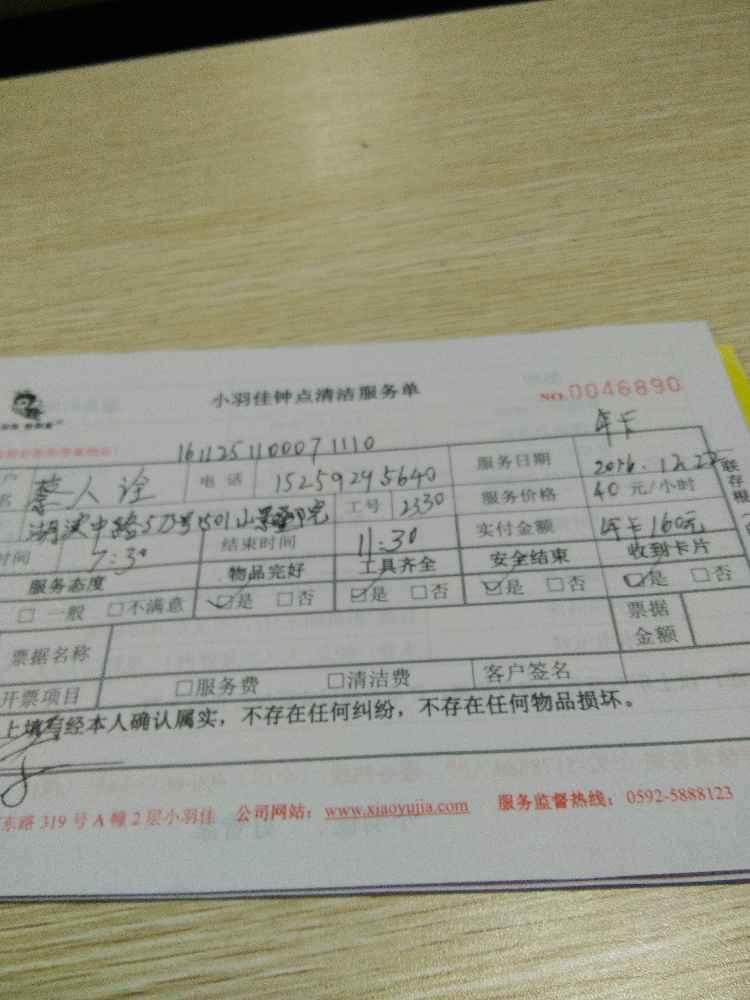 小羽佳钟点清洁服务单
NO.0046890
年卡
16112511000711110
户名 人诠 电话 15259245640 服务日期 2016.12.27
573号1501 工号 2330 服务价格 40 元/小时
时间 7:30 结束时间 11:30 实付金额 年卡160元
服务态度 物品完好 工具齐全 安全结束 收到卡片
□一般 □不满意 ☑是 □否 ☑是 □否 ☑是 □否 ☑是 □否
票据名称 票据金额
开票项目 □服务费 □清洁费 客户签名
上填写经本人确认属实，不存在任何纠纷，不存在任何物品损坏。
东路 319 号 A 幢 2 层小羽佳 公司网站：www.xiaoyujia.com 服务监督热线：0592-5888123
联存根